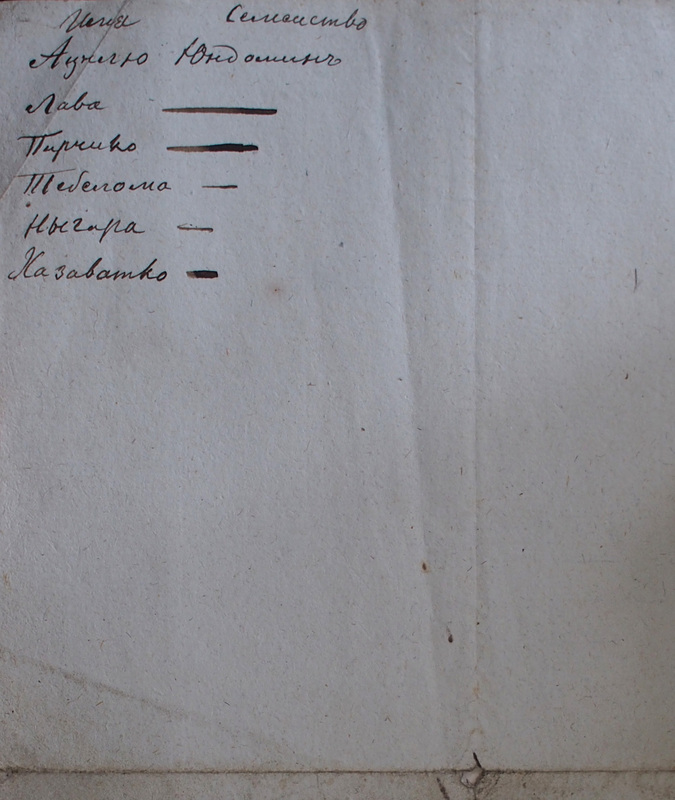 Имя Семейство
Ацилю Юндоминъ
Лава —
Пирчико —
Тебелома —
Ныгара —
Хазаватко —